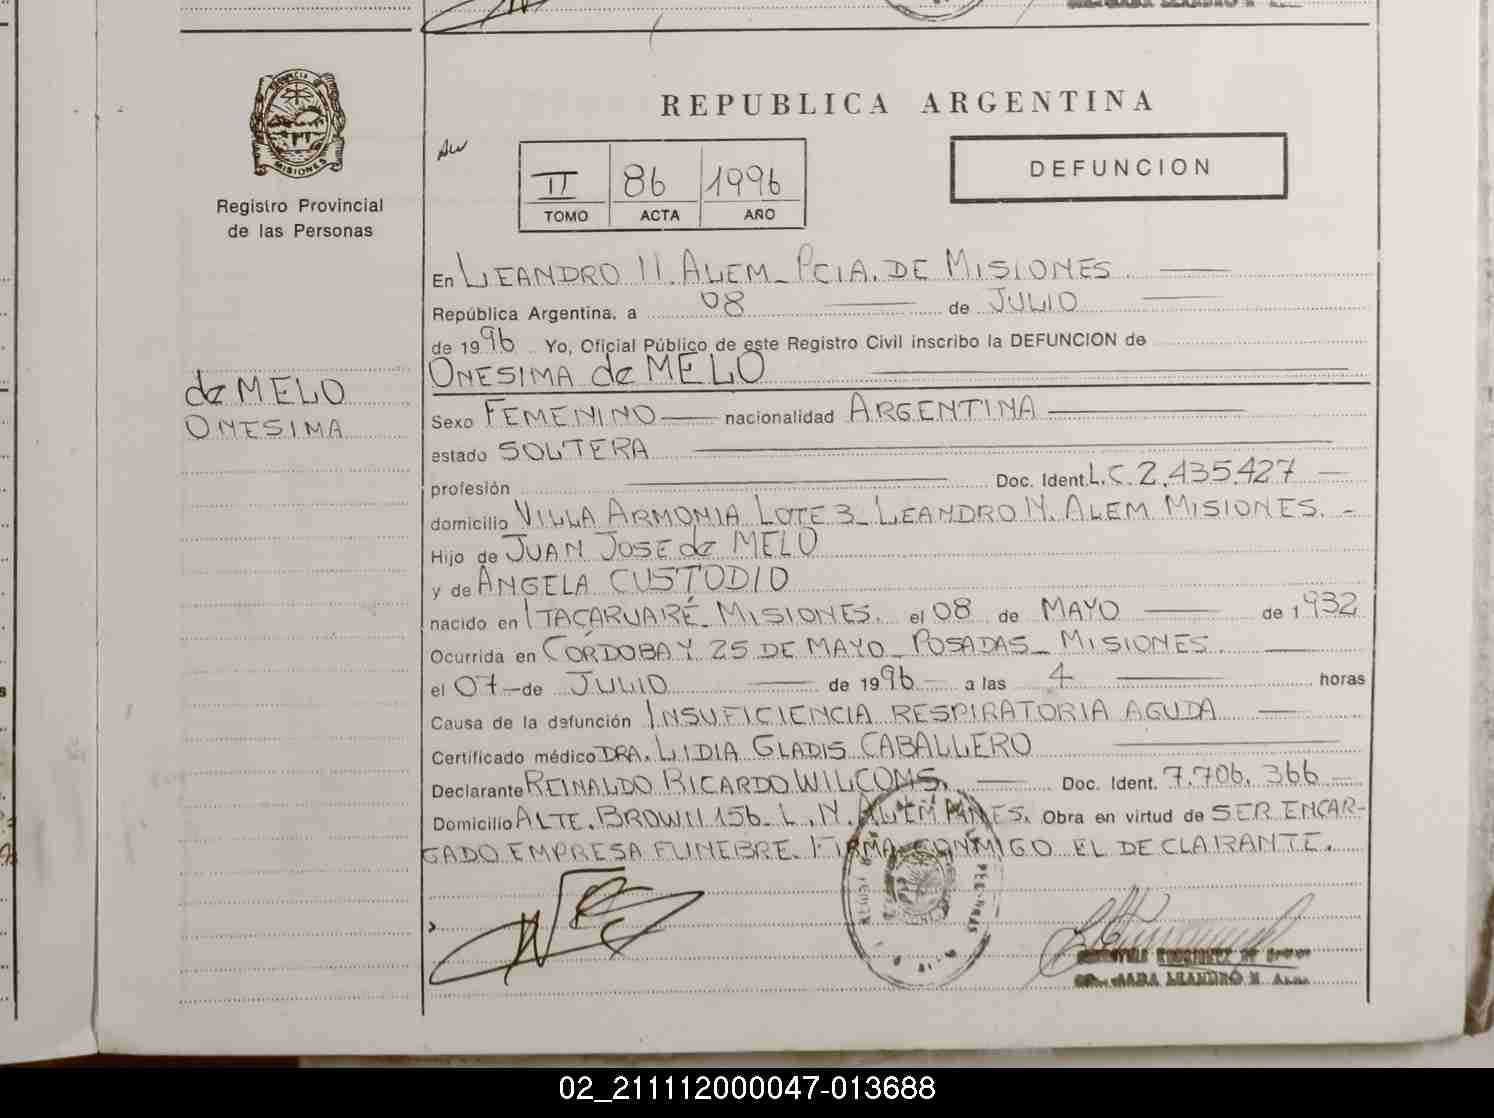 PROVINCIA DE
MISIONES
Registro Provincial
de las Personas
de MELO
ONESIMA
REPUBLICA ARGENTINA
II 86 1996
TOMO ACTA AÑO
DEFUNCION
En LEANDRO N. ALEM_ PCIA. DE MISIONES
República Argentina, a 08 de JULIO
de 1996 Yo, Oficial Público de este Registro Civil inscribo la DEFUNCION de
ONESIMA de MELO
Sexo FEMENINO nacionalidad ARGENTINA
estado SOLTERA
profesión Doc. Ident. L.C. 2.435.427
domicilio VILLA ARMONIA LOTE 3_ LEANDRO N. ALEM MISIONES.
Hijo de JUAN JOSE de MELO
y de ANGELA CUSTODIO
nacido en ITACARUARÉ_ MISIONES. el 08 de MAYO de 1932
Ocurrida en CÓRDOBA Y 25 DE MAYO_ POSADAS_ MISIONES.
el 07 de JULIO de 1996 a las 4 horas
Causa de la defunción INSUFICIENCIA RESPIRATORIA AGUDA
Certificado médico DRA. LIDIA GLADIS CABALLERO
Declarante REINALDO RICARDO WILCOMS. Doc. Ident. 7.706.366
Domicilio ALTE. BROWN 156_ L. N. ALEM MNES. Obra en virtud de SER ENCAR-
GADO EMPRESA FUNEBRE. FIRMA CONMIGO EL DECLARANTE.
LEANDRO N. ALEM
02_211112000047-013688